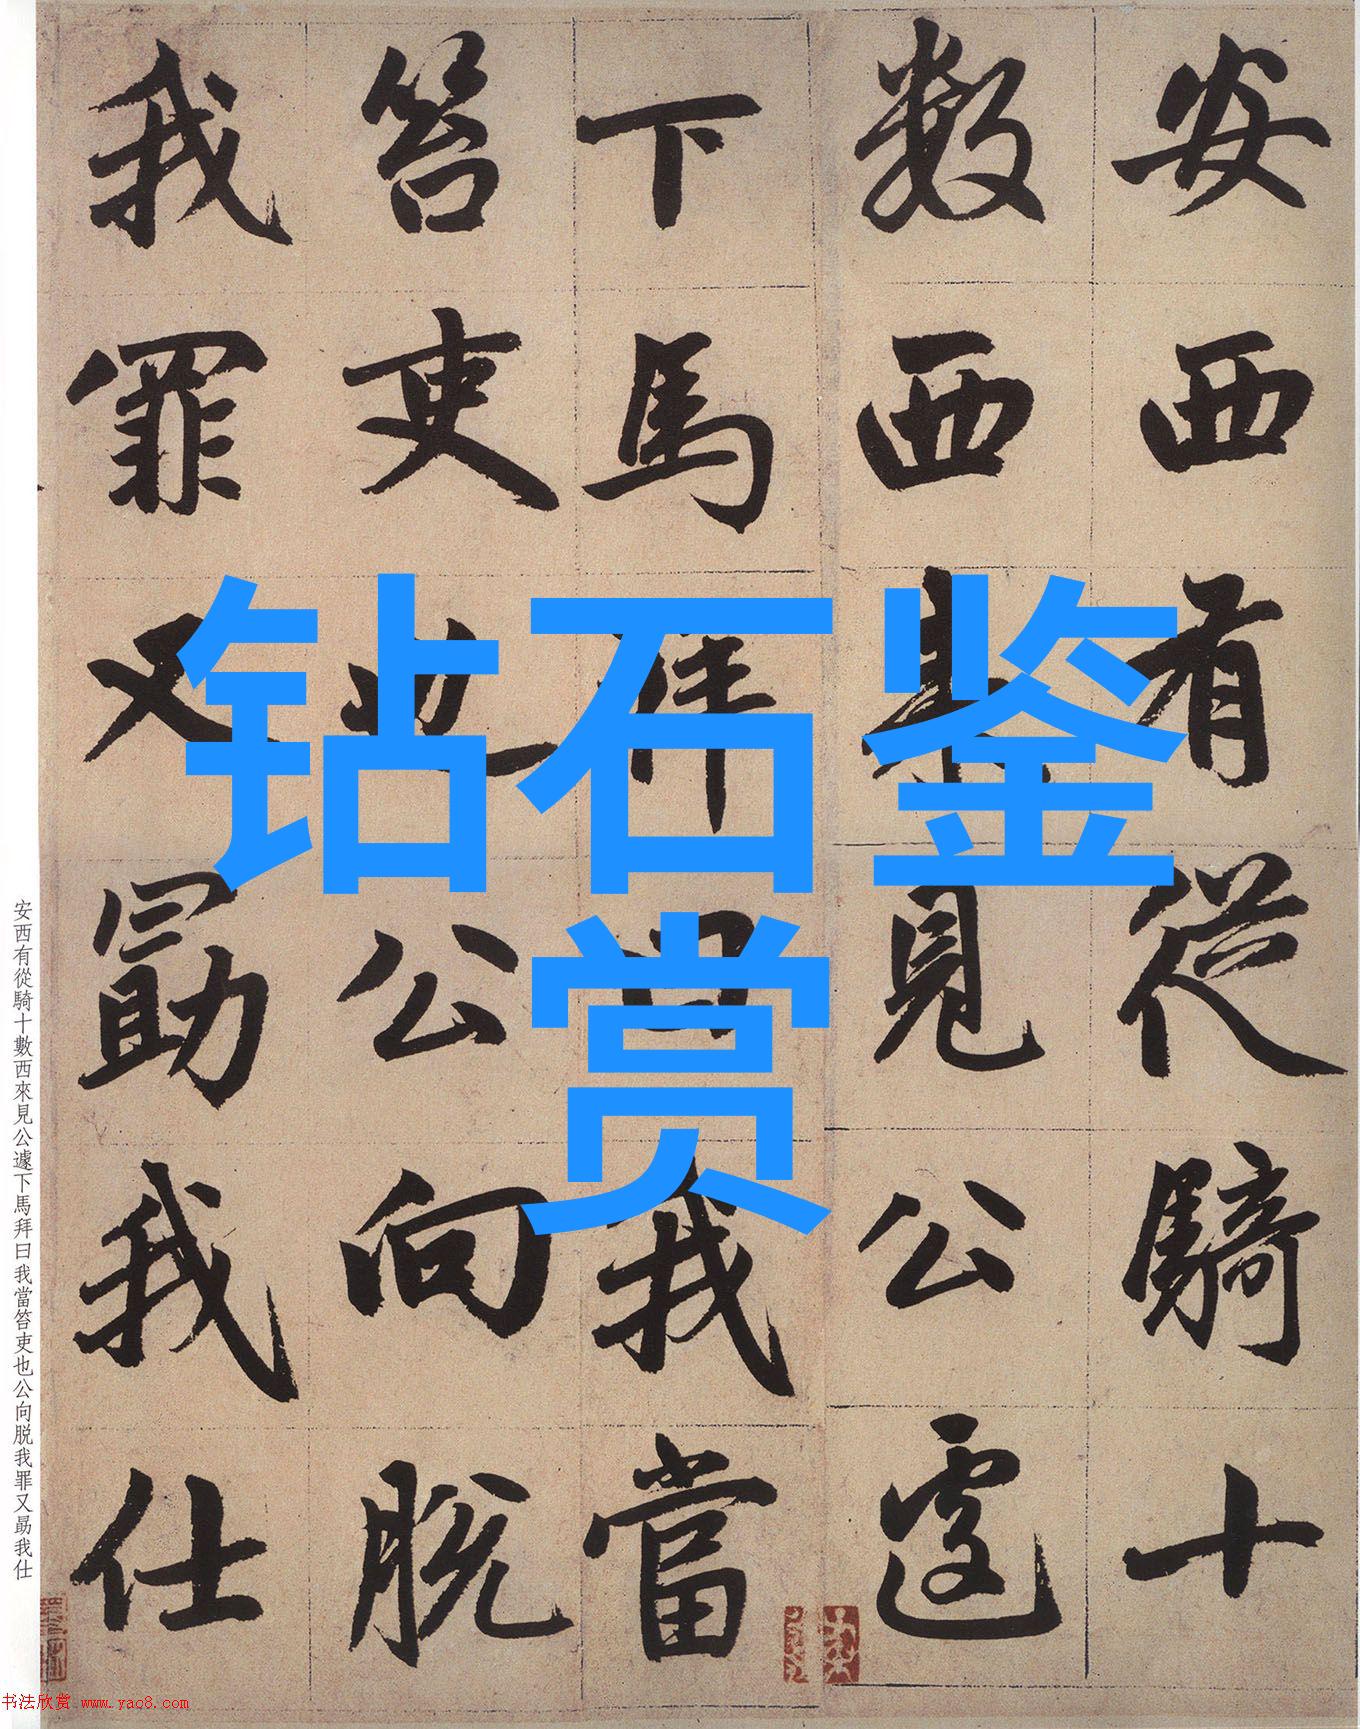 钻石鉴
赏
安西有從騎十
數西來見公遽
下馬拜曰我當
笞吏也公向脫
我罪又勗我仕
安西有從騎十數西來見公遽下馬拜曰我當笞吏也公向脱我罪又勗我仕
书法欣赏 www.yac8.com